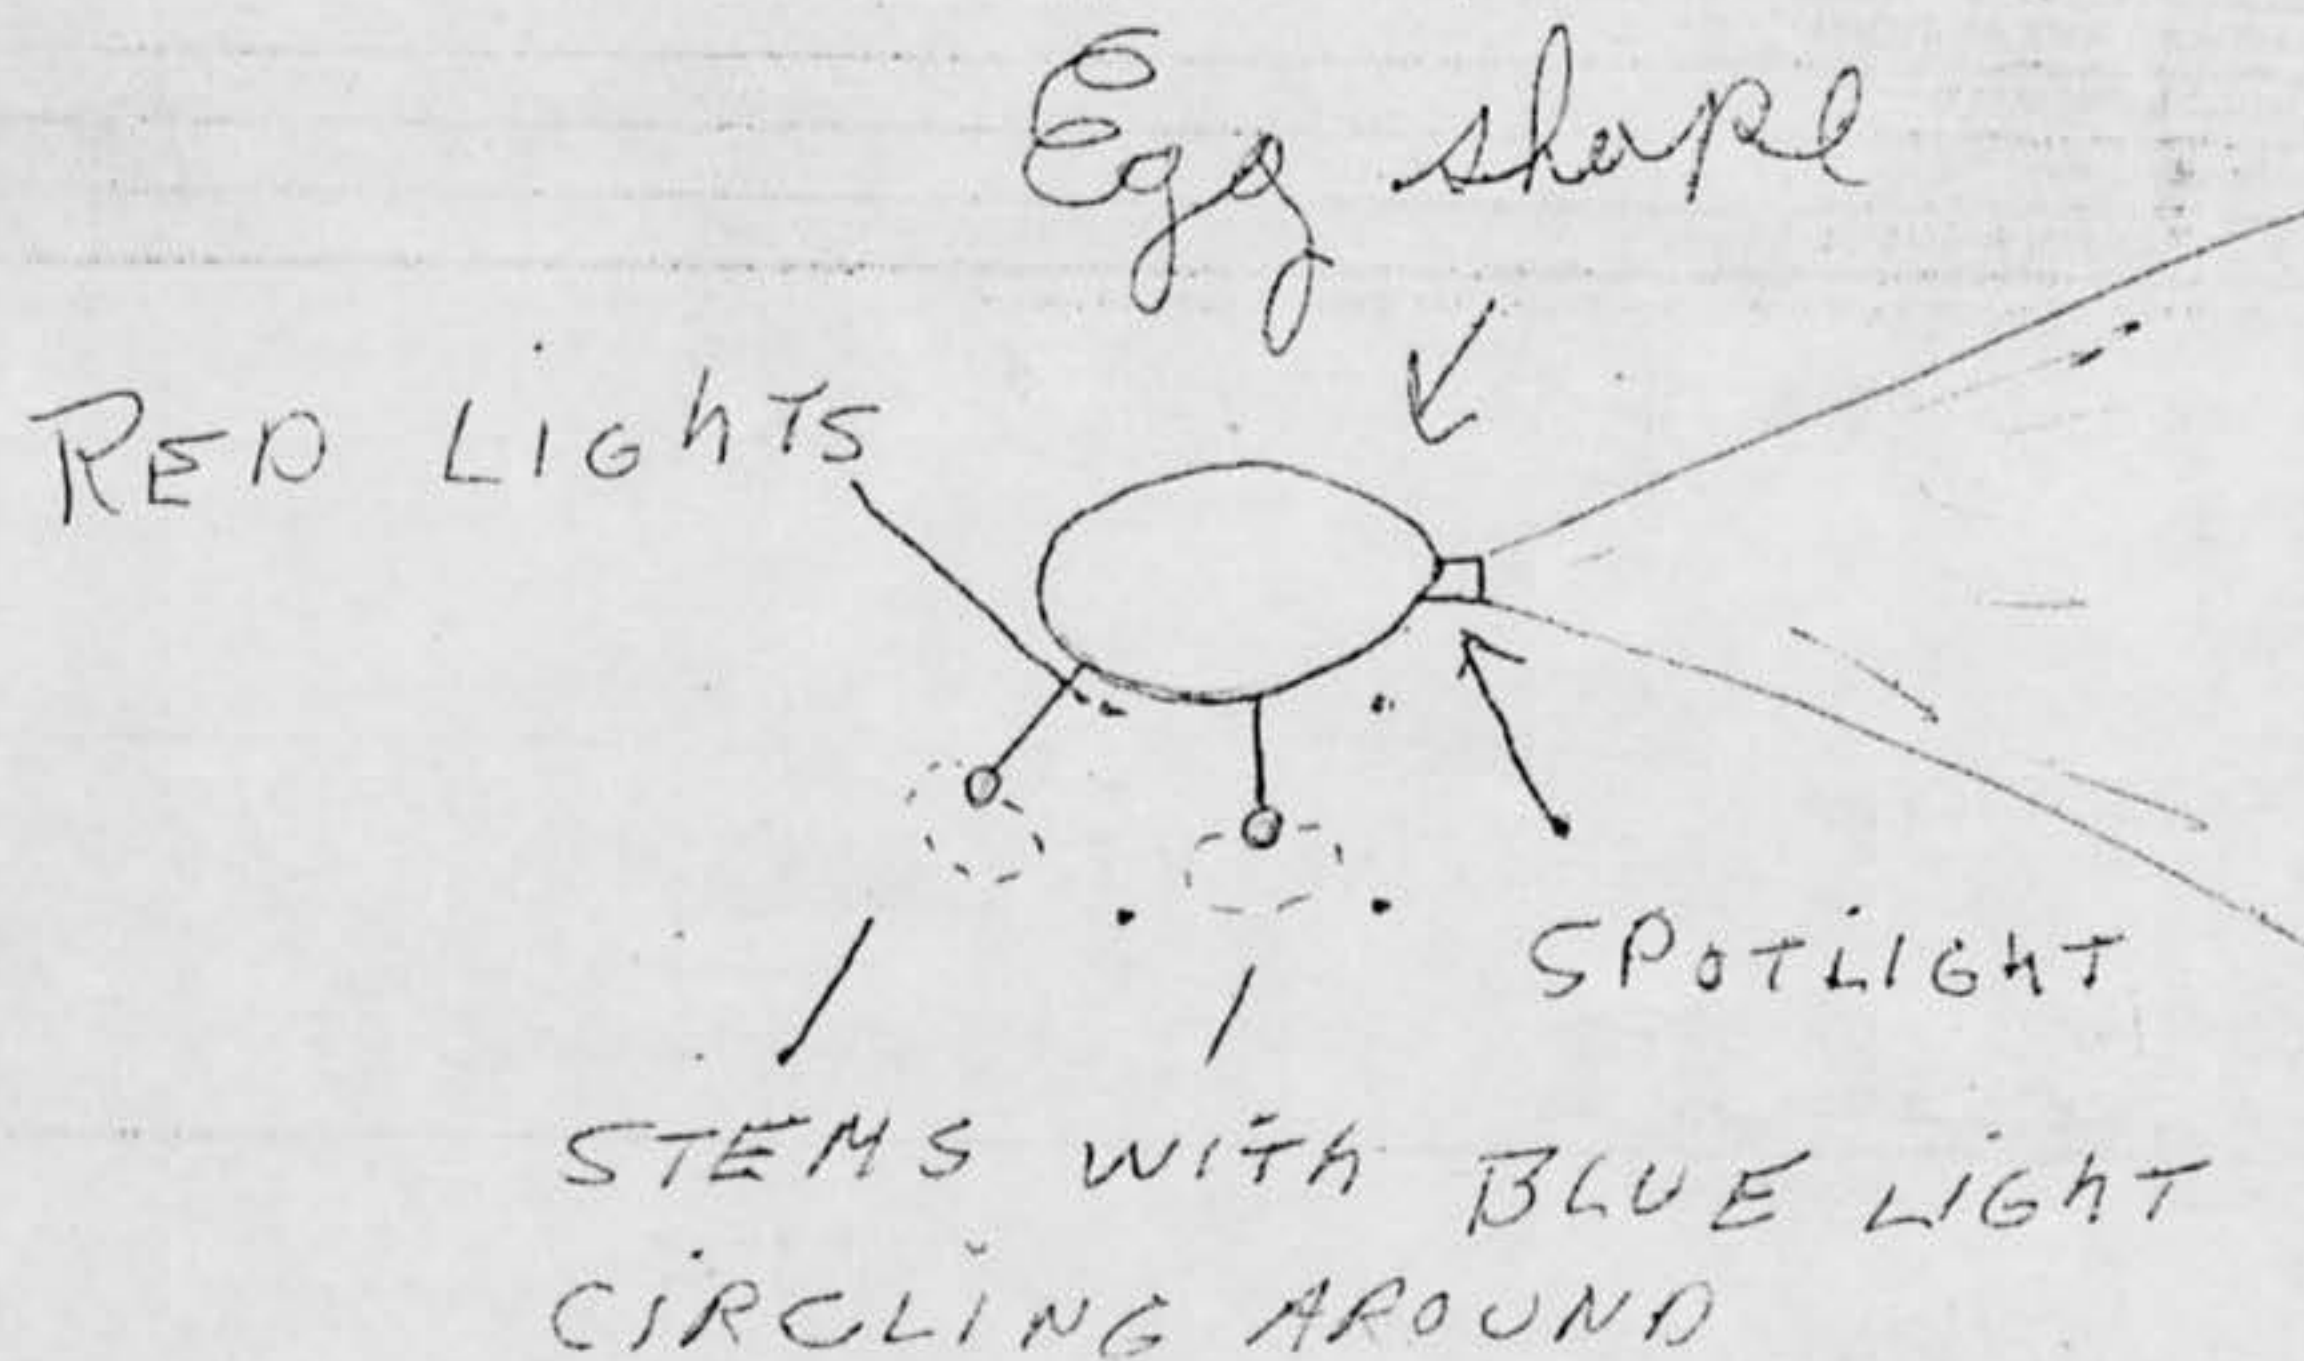 Egg shape
RED LIGhTS
SPOTLIGhT
STEMS WITh BLUE LIGhT
CIRCLING AROUND